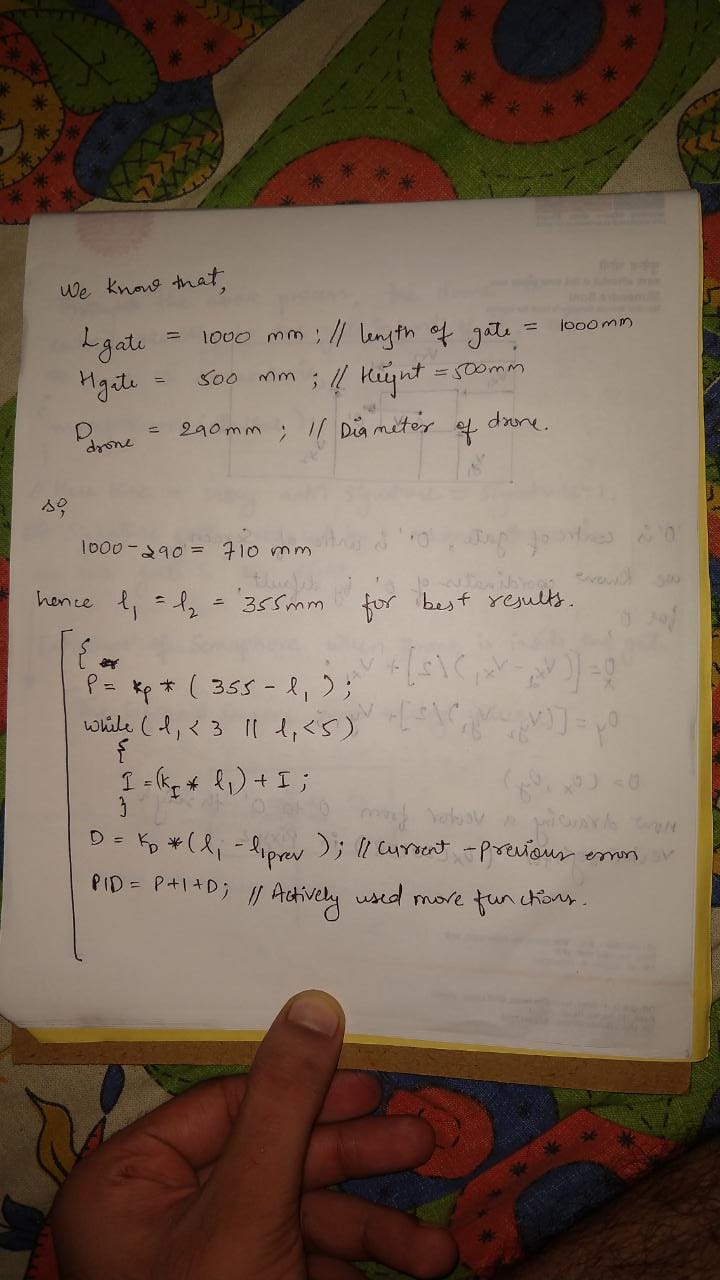 We know that,
Lgate = 1000 mm ; // length of gate = 1000mm
Hgate = 500 mm ; // Height = 500mm
Ddrone = 290mm ; // Diameter of drone.
so,
1000-290 = 710 mm
hence l1 = l2 = 355mm for best results.
{
P = kp * ( 355 - l1 );
while ( l1 < 3 || l1 < 5 )
{
I = (kI * l1) + I ;
}
D = KD * ( l1 - l1prev ); // current - previous error
PID = P+I+D; // Actively used more functions.